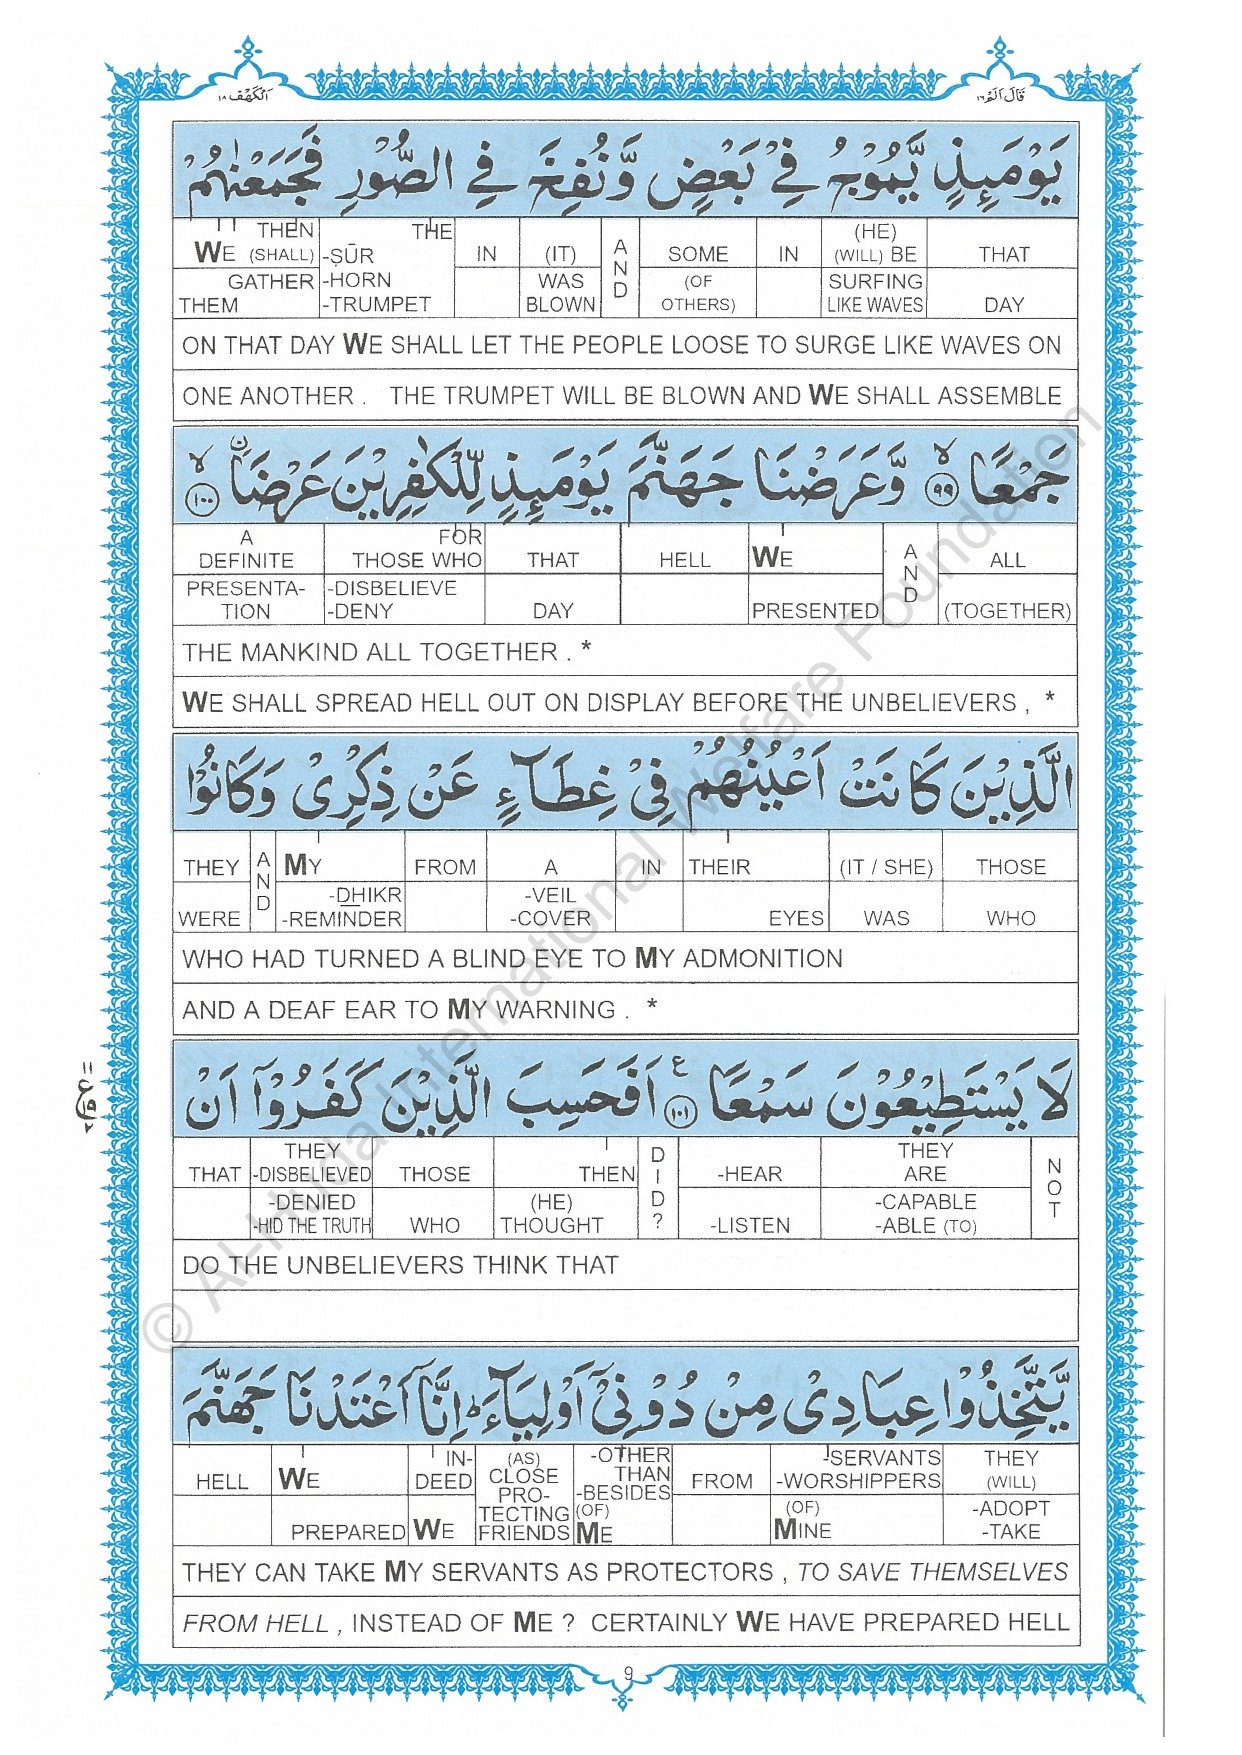 الكهف ١٨
قال الم ١٦
يَوْمَئِذٍ يَّمُوْجُ فِيْ بَعْضٍ وَّنُفِخَ فِي الصُّوْرِ فَجَمَعْنٰهُمْ
THEN WE (SHALL) | THE -ṢŪR -HORN -TRUMPET | IN | (IT) | AND | SOME | IN | (HE) (WILL) BE | THAT
GATHER THEM | WAS BLOWN | (OF OTHERS) | SURFING LIKE WAVES | DAY
ON THAT DAY WE SHALL LET THE PEOPLE LOOSE TO SURGE LIKE WAVES ON
ONE ANOTHER . THE TRUMPET WILL BE BLOWN AND WE SHALL ASSEMBLE
جَمْعًا ۙ﴿۹۹﴾ وَّعَرَضْنَا جَهَنَّمَ يَوْمَئِذٍ لِّلْكٰفِرِيْنَ عَرْضَاۨ ۙ﴿۱۰۰﴾
A DEFINITE | FOR THOSE WHO | THAT | HELL | WE | AND | ALL
PRESENTA-TION | -DISBELIEVE -DENY | DAY | PRESENTED | (TOGETHER)
THE MANKIND ALL TOGETHER . *
WE SHALL SPREAD HELL OUT ON DISPLAY BEFORE THE UNBELIEVERS , *
الَّذِيْنَ كَانَتْ اَعْيُنُهُمْ فِيْ غِطَآءٍ عَنْ ذِكْرِيْ وَكَانُوْا
THEY | AND | MY | FROM | A | IN | THEIR | (IT / SHE) | THOSE
WERE | -DHIKR -REMINDER | -VEIL -COVER | EYES | WAS | WHO
WHO HAD TURNED A BLIND EYE TO MY ADMONITION
AND A DEAF EAR TO MY WARNING . *
لَا يَسْتَطِيْعُوْنَ سَمْعًا ﴿۱۰۱﴾ ع اَفَحَسِبَ الَّذِيْنَ كَفَرُوْٓا اَنْ
THAT | THEY -DISBELIEVED | THOSE | THEN | DID? | -HEAR | THEY ARE | NOT
-DENIED -HID THE TRUTH | WHO | (HE) THOUGHT | -LISTEN | -CAPABLE -ABLE (TO)
DO THE UNBELIEVERS THINK THAT
يَّتَّخِذُوْا عِبَادِيْ مِنْ دُوْنِيْٓ اَوْلِيَآءَ اِنَّآ اَعْتَدْنَا جَهَنَّمَ
HELL | WE | IN-DEED | (AS) CLOSE PRO-TECTING FRIENDS | -OTHER THAN -BESIDES (OF) ME | FROM | -SERVANTS -WORSHIPPERS | THEY (WILL)
PREPARED | WE | (OF) MINE | -ADOPT -TAKE
THEY CAN TAKE MY SERVANTS AS PROTECTORS , TO SAVE THEMSELVES
FROM HELL , INSTEAD OF ME ? CERTAINLY WE HAVE PREPARED HELL
9
© Al-Huda International Welfare Foundation